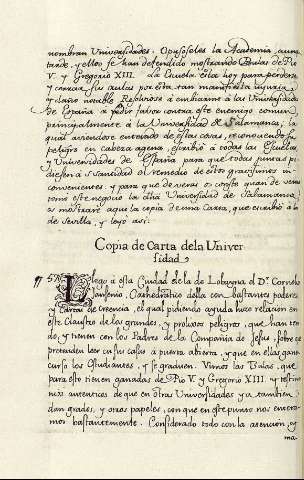 nombran Universidades. Opusoseles la Academia, aunq̃
tarde, y ellos se han defendido mostrando Bulas de Pio
V. y Gregorio XIII. La Escuela esta hoy para perderse
y cerrar sus aulas por esta tan manifiesta injuria
y daño notable. Resolviose a embiarme a las Universidades
de España a pedir favor contra este enemigo comun,
principalmente a la Universidad de Salamanca, la
qual aviendose enterado de estas cosas, reconociendo su
peligro en cabeza agena, escribió a todas las Escuelas,
y Universidades de España para que todas juntas pi-
diessen a su Santidad el remedio de estos gravissimos in-
convenientes. y para que de veras os conste quan de veras
tome este negocio la dha Universidad de Salamanca,
os mostraré aqui la copia de una Carta, que escribió a la
de Sevilla, y leyó assi.
Copia de Carta de la Univer
sidad
57 Llego a esta Ciudad el de la de Lobayna el Dr. Cornelio
Jansenio, Cathedratico della con bastantes poderes
y Cartas de creencia, el qual pidiendo ayuda hizo relacion en
este Claustro de los grandes, y prolixos peligros, que han teni
do, y tienen con los Padres de la Compañia de Jesus, sobre q̃
pretenden leer en sus casas a puerta abierta, y que en ellas ganen
curso los Estudiantes, y se graduen. Vimos las Bulas, que
para esto tienen ganadas de Pio V. y Gregorio XIII. y testimo
nios autenticos de que en otras Universidades ya tambien
dan grados, y otros papeles, con que en este punto nos entera-
mos bastantemente. Considerado todo con la atencion, y
ma